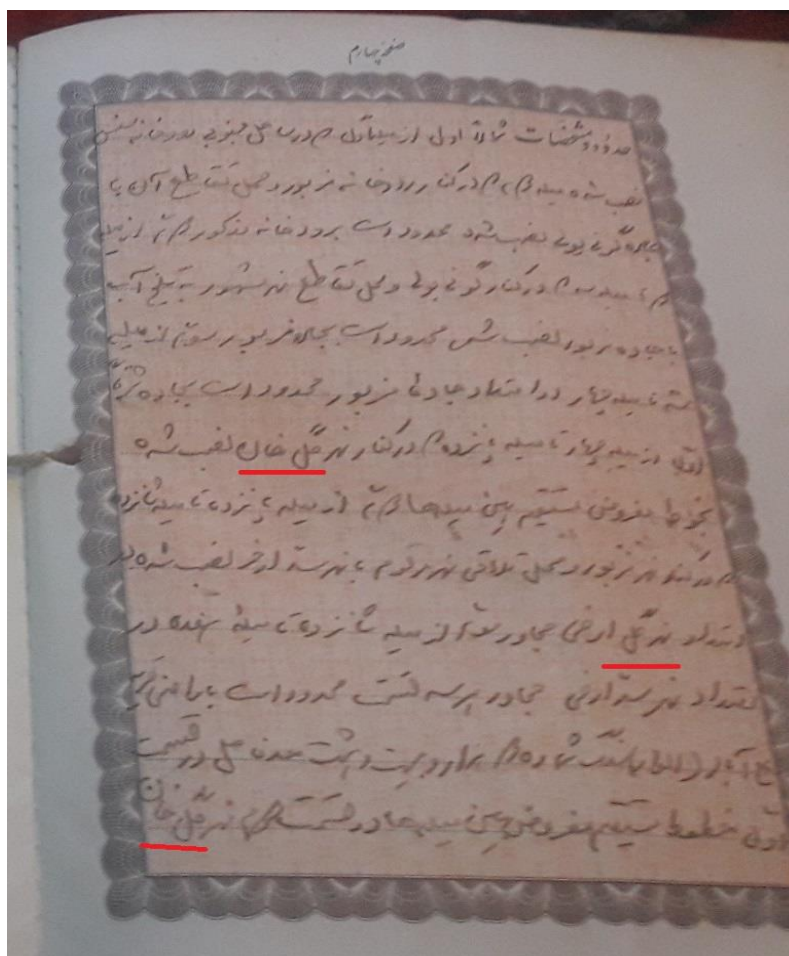 صفحه چهارم
حدود و مشخصات شمالاً اول از میله اول که در ساحل جنوبی رودخانه
نصب شده میله دوم که در کنار رودخانه مزبور و محل تقاطع آن با
جاده گونی یولی نصب شده محدود است برودخانه مذکور دوم از میله
دوم تا میله سوم در کنار گونی یولی و محل تقاطع نهر مشهور به آب
با جاده مزبور نصب شده محدود است بجاده مزبور سوم از میله
سه تا میله چهار در امتداد جاده مزبور محدود است بجاده شرقاً
اول از میله چهار تا میله پانزدهم در کنار نهر گل خان نصب شده
بخطوط مفروض مستقیم بین میله ها دوم از میله پانزده تا میله شانزده
که در کنار نهر مزبور و محل تلاقی نهر مرقوم با نهر سه ارخ نصب شده در
امتداد نهر گل ارخی مجاور سوم از میله شانزده تا میله هفده در
امتداد نهر سه ارخی مجاور هر سه قسمت محدود است باراضی قریه
آباد پلاک شماره دو هزار و بیست و هشت حد فاصل در قسمت
اول خطوط مستقیم مفروض بین میله ها در قسمت دوم نهر گل خان